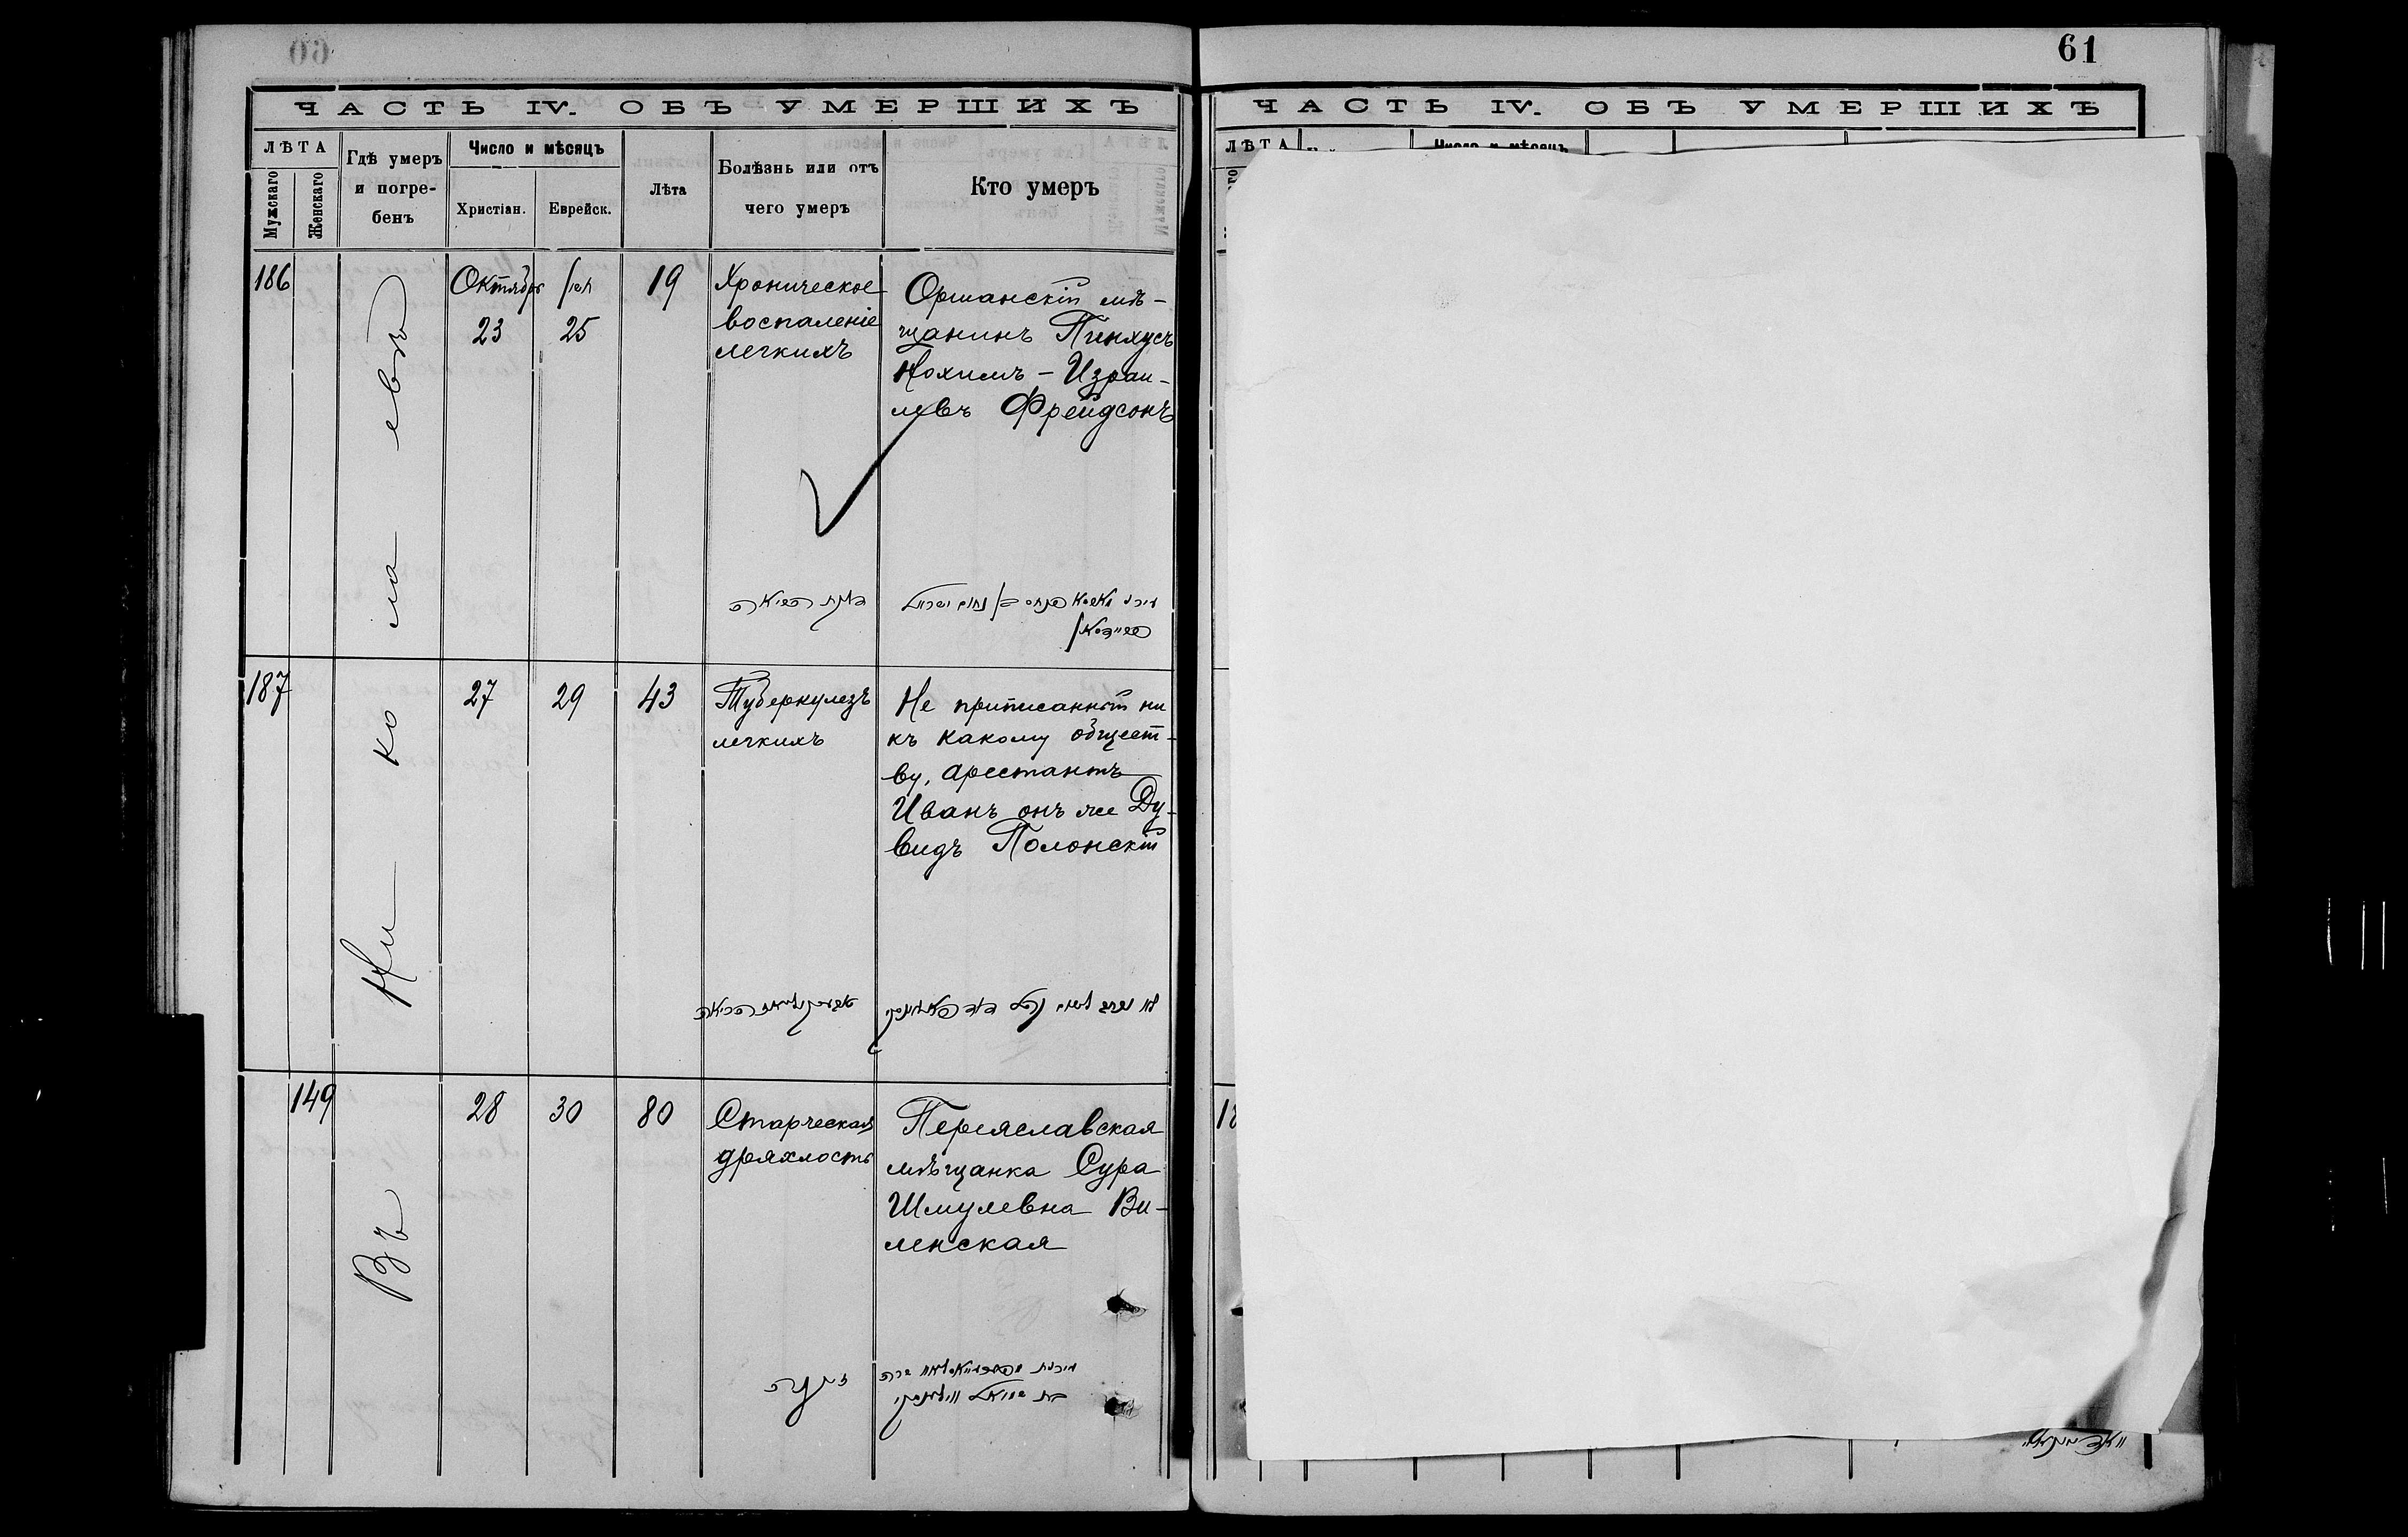 60
ЧАСТЬ IV. ОБЪ УМЕРШИХЪ
ЛѢТА
Мужскаго
Женскаго
Гдѣ умеръ
и погре-
бенъ
Число и мѣсяцъ
Христіан.
Еврейск.
Лѣта
Болѣзнь или отъ
чего умеръ
Кто умеръ
Въ Николаевѣ
186
Октябрь
23
25
19
Хроническое
воспаленіе
легкихъ
Оршанскій мѣ-
щанинъ Пинхусъ
Нохимъ - Израи-
левъ Фрейдсонъ
187
27
29
43
Туберкулезъ
легкихъ
Не приписанный ни
къ какому общест-
ву, арестантъ
Иванъ онъ же Ду-
видъ Полонскій
149
28
30
80
Старческая
дряхлость
Переяславская
мѣщанка Сура
Шмулевна Ви-
ленская
זקנה
61
ЧАСТЬ IV. ОБЪ УМЕРШИХЪ
ЛѢТА
Число и мѣсяцъ
18